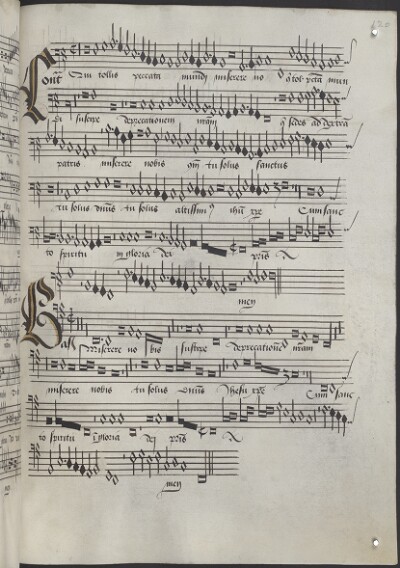 Qui tollis peccata mundi miserere no
suscipe deprecationem nram q sedes ad dextra
patris miserere nobis qm tu solus sanctus
tu solus dnus tu solus altissim9 ihu xpe Cum sanc
to spiritu in gloria dei pris A
men
Bass Miserere no bis suscipe deprecatione nram
miserere nobis tu solus dnus Jhesu xpe Cum sanc
to spiritu i gloria dei pris A
men